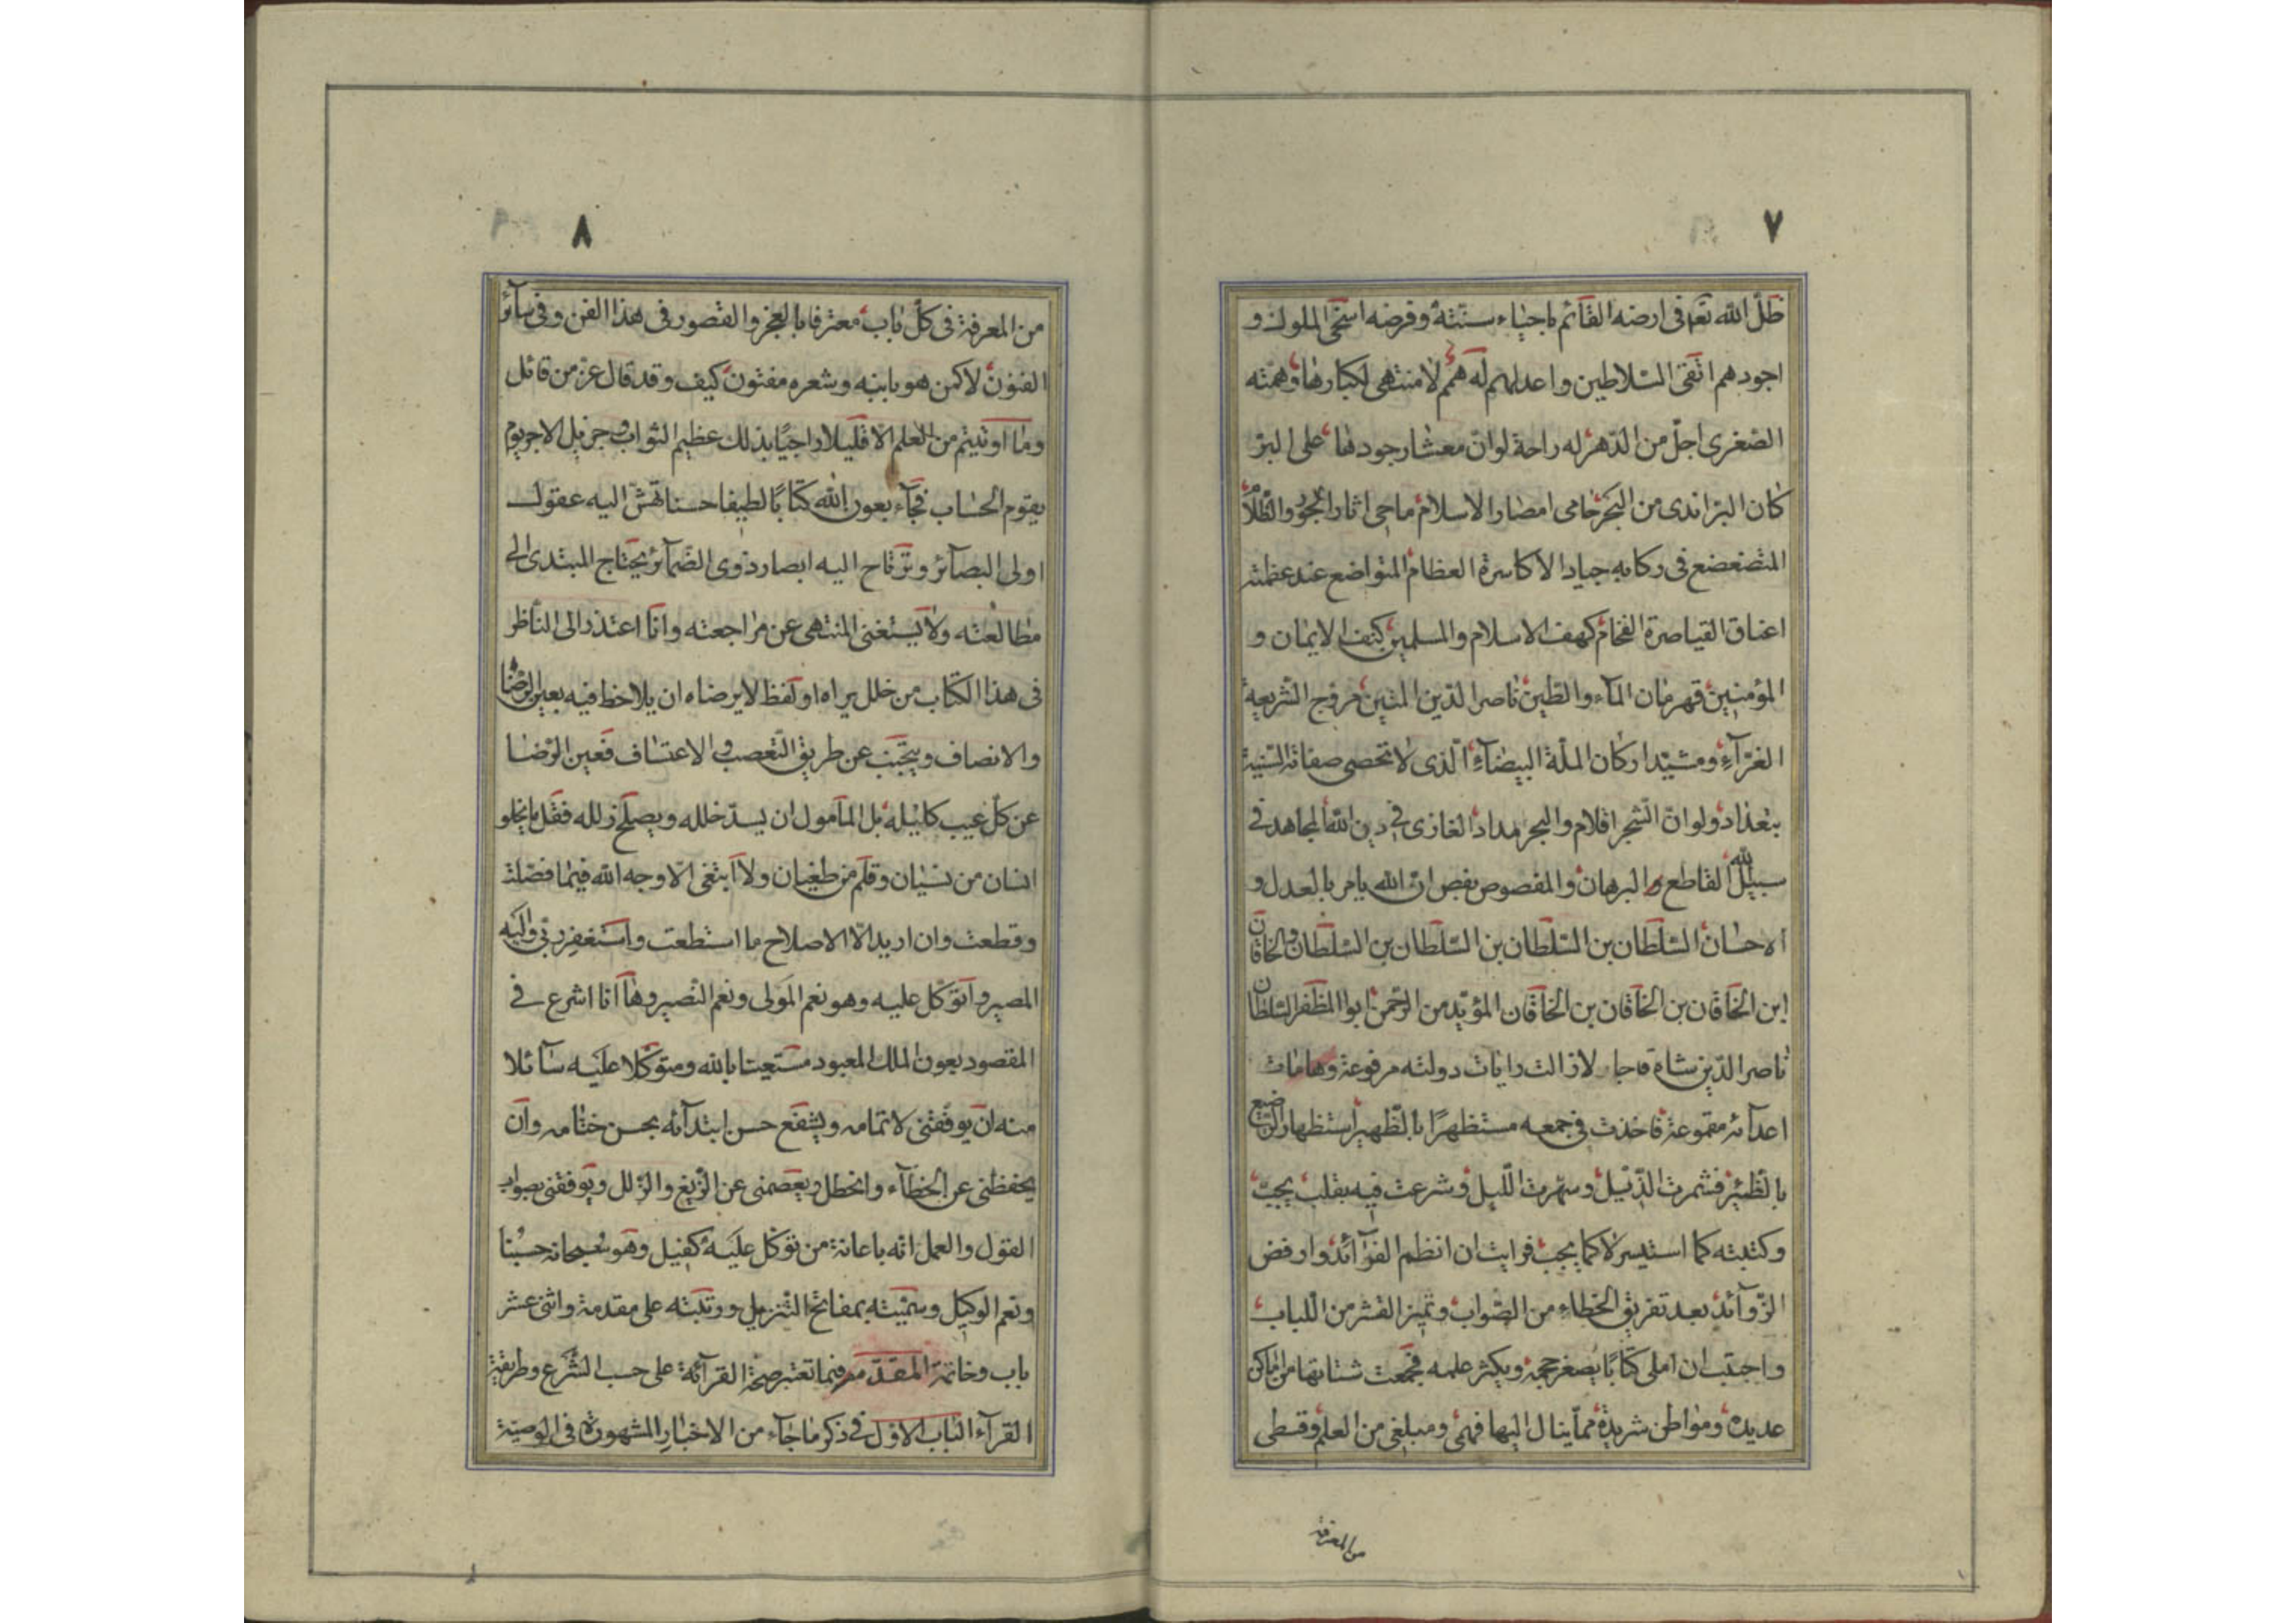 ٧
ظلّ الله تعم فى ارضه القآئم باحيٰاء سنّته وفرضه اسخى الملوك و
اجودهم اتقى السّلاطين واعدلهم له همم لا منتهى لكبارها وهمته
الصّغرى اجلّ من الدّهر له راحة لو انّ معشار جودها على البرّ
كان البرّ اندى من البحر حامى امصار الاسلام ماحى اثار الجور والظّلام
المتضعضع فى ركابه جياد الاكاسرة العظام المتواضع عند عظمته
اعناق القياصرة الفخام كهف الاسلام والمسلمين كنف الايمان و
المؤمنين قهرمان المآء والطّين ناصر الدّين المتين مروّج الشّريعة
الغرّآء ومشيّد اركان الملّة البيضآء الّذى لا تحصى صفاته السّنيّة
بتعداد ولو انّ الشّجر اقلام والبحر مداد الغازى فى دين الله المجاهد فى
سبيل الله القاطع البرهان والمقصوص بفص ان الله يامر بالعدل و
الاحسان السّلطان بن السّلطان بن السّلطان بن السّلطان والخاقان
ابن الخاقان بن الخاقان بن الخاقان المؤيّد من الرّحمن ابوا المظفر السّلطان
ناصر الدّين شاه قاجار لا زالت رايات دولته مرفوعة وهامات
اعدآئه مقموعة فاخذت فى جمعه مستظهرًا بالظّهير استظهار الرّضيع
بالظّئر فشمرت الذّيل وسهرت اللّيل وشرعت فيه بقلب يجبّ
وكتبته كما استيسر لا كما يجب فرايت ان انظم الفوآئد وارفض
الزّوآئد بعد تفريق الخطاء من الصّواب وتميز القشر من اللّباب
واحببت ان املى كتابًا يصغر حجمه ويكثر علمه فجمعت شتاتها من اماكن
عديده ومواطن شريدة ممّا ينال اليها فهمى ومبلغى من العلم وقسطى
من المعرفة
٨
من المعرفة فى كلّ باب معترفا بالعجز والقصور فى هذا الفن وفى سآئر
الفنون لاكمن هو بابنه وشعره مفتون كيف وقد قال عزّ من قائل
وما اوتيتم من العلم الا قليلا راجيًا بذلك عظيم الثواب وجزيل الاجر يوم
يقوم الحساب فجآء بعون الله كتابًا لطيفا حسنا تهشّ اليه عقول
اولى البصآئر وترتاح اليه ابصار ذوى الضّمآئر يحتاج المبتدى الى
مطالعته ولا يستغنى المنتهى عن مراجعته وانا اعتذر الى النّاظر
فى هذا الكتاب من خلل يراه او لفظ لا يرضاه ان يلاحظ فيه بعين الرّضا
والانصاف ويتجنّب عن طريق التّعصب والاعتساف فعين الرّضا
عن كلّ عيب كليلة بل المأمول ان يسدّ خلله ويصلح زلله فقل ما يخلو
انسان من نسيان وقلم من طغيان ولا ابتغى الّا وجه الله فيما فصّلت
وقطعت وان اريد الّا الاصلاح ما استطعت واستغفر ربّى واليه
المصير واتوكل عليه وهو نعم المولى ونعم النّصير وها انا اشرع فى
المقصود بعون الملك المعبود مستعينا بالله ومتوكّلا عليه سآئلا
منه ان يوفّقنى لاتمامه ويشفع حسن ابتدآئه بحسن ختامه وان
يحفظنى عن الخطآء والخطل ويعصمنى عن الزّيغ والزّلل ويوفقنى بصواب
القول والعمل انه باعانة من توكّل عليه كفيل وهو سبحانه حسبنا
ونعم الوكيل وسمّيته بمفاتح التّنزيل ورتبّته على مقدمة واثنى عشر
باب وخاتمة المقدّمه فيما تعتبر صحّة القرآئة على حسب الشّرع وطريقة
القرآء الباب الاوّل فى ذكر ما جآء من الاخبار المشهورة فى الوصيّة